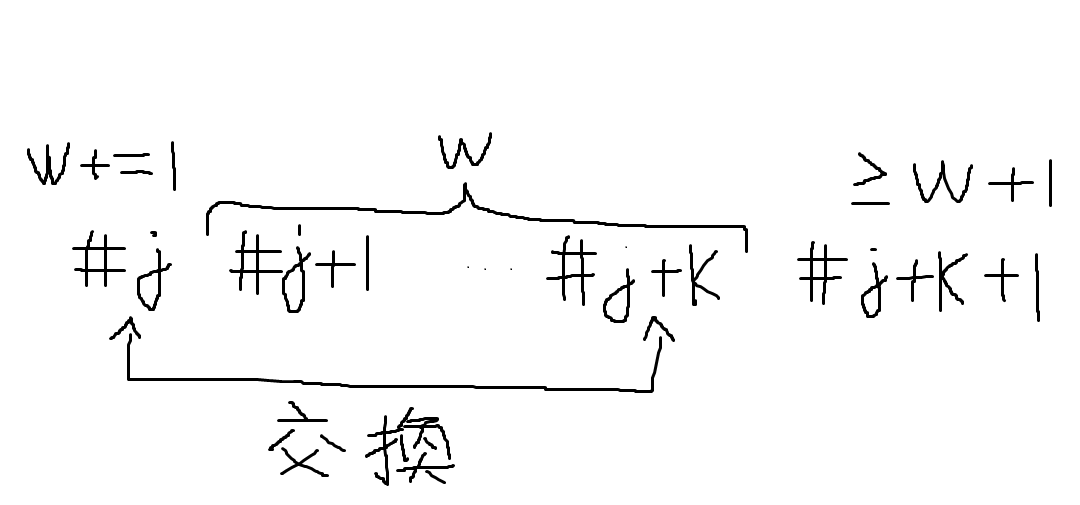 W
W+=1
≥W+1
#j #j+1 ..... #j+K #j+K+1
交換